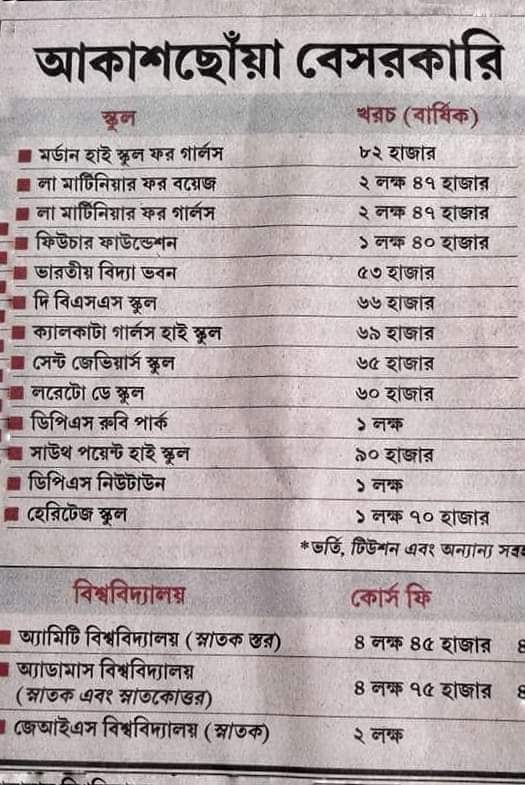 আকাশছোঁয়া বেসরকারি
স্কুল খরচ (বার্ষিক)
মর্ডান হাই স্কুল ফর গার্লস ৮২ হাজার
লা মার্টিনিয়ার ফর বয়েজ ২ লক্ষ ৪৭ হাজার
লা মার্টিনিয়ার ফর গার্লস ২ লক্ষ ৪৭ হাজার
ফিউচার ফাউন্ডেশন ১ লক্ষ ৪০ হাজার
ভারতীয় বিদ্যা ভবন ৫৩ হাজার
দি বিএসএস স্কুল ৬৬ হাজার
ক্যালকাটা গার্লস হাই স্কুল ৬৯ হাজার
সেন্ট জেভিয়ার্স স্কুল ৬৫ হাজার
লরেটো ডে স্কুল ৬০ হাজার
ডিপিএস রুবি পার্ক ১ লক্ষ
সাউথ পয়েন্ট হাই স্কুল ৯০ হাজার
ডিপিএস নিউটাউন ১ লক্ষ
হেরিটেজ স্কুল ১ লক্ষ ৭০ হাজার
*ভর্তি, টিউশন এবং অন্যান্য
বিশ্ববিদ্যালয় কোর্স ফি
অ্যামিটি বিশ্ববিদ্যালয় (স্নাতক স্তর) ৪ লক্ষ ৪৫ হাজার ৪
অ্যাডামাস বিশ্ববিদ্যালয়
(স্নাতক এবং স্নাতকোত্তর) ৪ লক্ষ ৭৫ হাজার ৪
জেআইএস বিশ্ববিদ্যালয় (স্নাতক) ২ লক্ষ